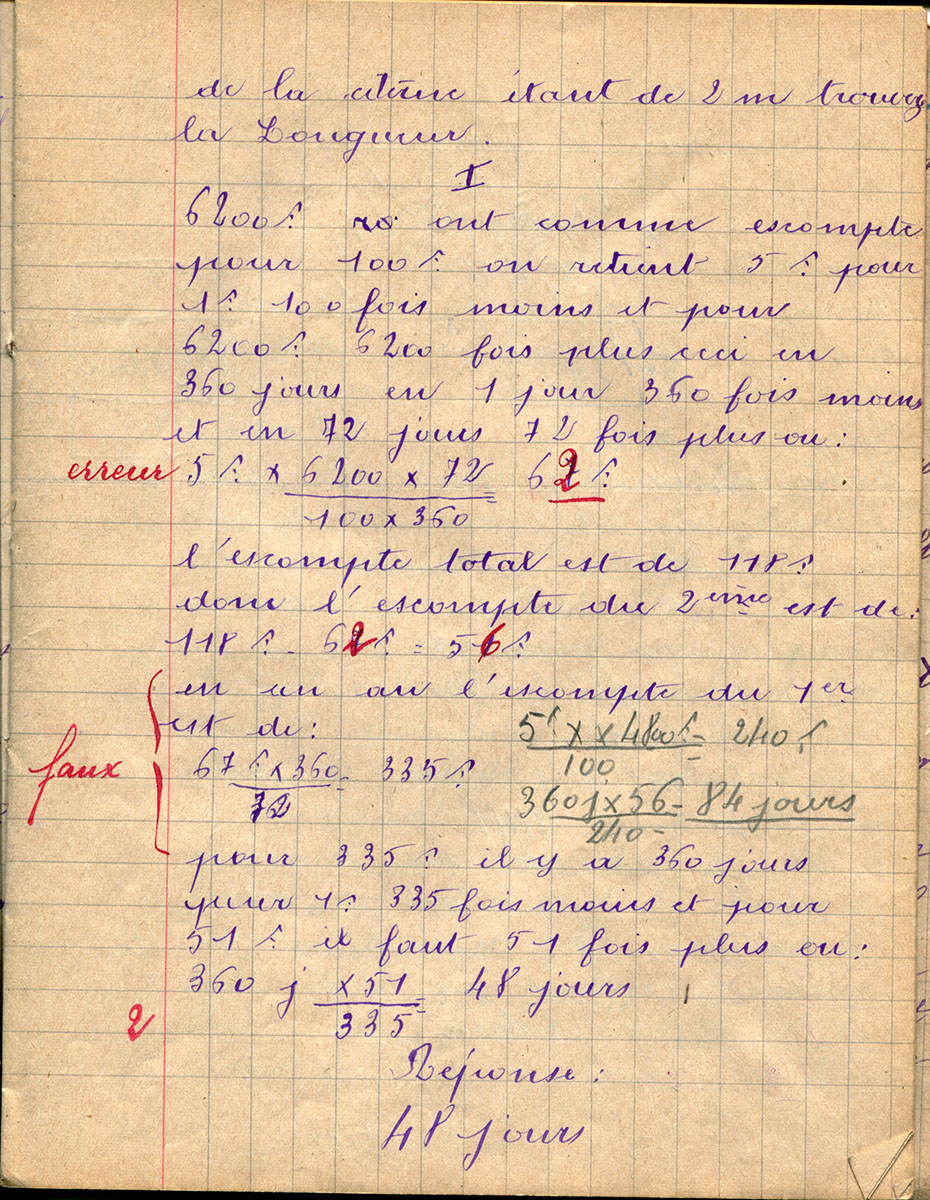 de la citerne étant de 2 m trouvez
la Longueur.
I
6200f. ont comme escompte
pour 100f. on retient 5f. pour
1f. 100 fois moins et pour
6200f. 6200 fois plus ceci en
360 jours en 1 jour 360 fois moins
et en 72 jours 72 fois plus ou:
erreur 5f. x 6200 x 72 = 62f.
100 x 360
l'escompte total est de 118f.
donc l'escompte du 2ème est de:
118f. - 62f. = 56f.
en un an l'escompte du 1er
est de:
5f x x 4800f = 240f
100
faux
67f x 360 = 335f.
72
360j x 56 = 84 jours
240
pour 335f. il y a 360 jours
pour 1f. 335 fois moins et pour
51f. il faut 51 fois plus ou:
360 j x 51 = 48 jours
335
2
Réponse:
48 jours